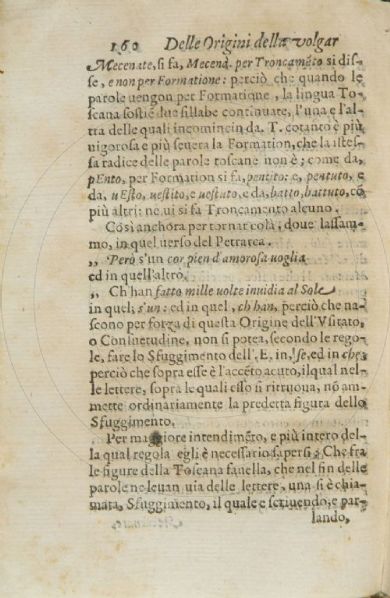 160 Delle Origini della volgar
Mecenate, si fa, Mecenã. per Troncamẽto si dis-
se, e non per Formatione: perciò che quando le
parole uengon per Formatione, la lingua To-
scana sostiẽ due sillabe continuate, l'una e l'al-
tra delle quali incomincin da. T. cotanto è più
uigorosa e più seuera la Formation, che la istes-
sa radice delle parole toscane non è; come da,
pEnto, per Formation si fa, pentito: e, pentuto, e
da, uEsto, uestito, e uestuto, e da, batto, battuto, cõ
più altri: ne ui si fa Troncamento alcuno.
Così anchora per tornar colà, doue lassam-
mo, in quel uerso del Petrarca.
„ Però s'un cor pien d'amorosa uoglia
ed in quell'altro.
„ Ch han fatto mille volte inuidia al Sole
in quel, s'un: ed in quel, ch han, perciò che na-
scono per forza di questa Origine dell'Vsitato,
o Consuetudine, non si potea, secondo le rego-
le, fare lo Sfuggimento dell', E, in, se, ed in che;
perciò che sopra esse è l'accẽto acuto, il qual nel-
le lettere, sopra le quali esso si ritruoua, nõ am-
mette ordinariamente la predetta figura dello
Sfuggimento.
Per maggiore intendimẽto, e più intero del-
la qual regola egli è necessario sapersi; Che fra
le figure della Toscana fauella, che nel fin delle
parole ne leuan uia delle lettere, una si è chia-
mata, Sfuggimento, il quale e scriuendo, e par-
lando,